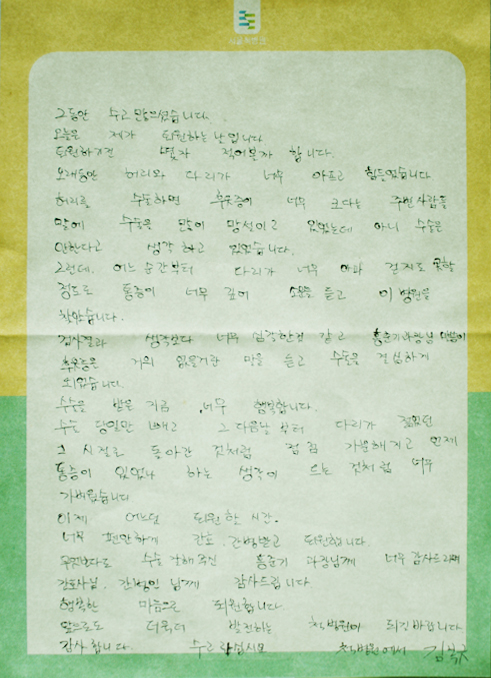 그동안 수고 많으셨습니다.
오늘은 제가 퇴원하는 날입니다
퇴원하기전 몇자 적어보자 합니다.
오래동안 허리와 다리가 너무 아프고 힘들었습니다
허리를 수술하면 후유증이 너무 크다는 주변사람들
말에 수술을 많이 망설이고 있었는데 아니 수술은
안한다고 생각하고 있었습니다.
그런데. 어느 순간부터 다리가 너무 아파 걷지도 못할
정도로 통증이 너무 깊어 소문을 듣고 이 병원을
찾았습니다.
검사결과 생각보다 너무 심각한것 같고 홍준기과장님 말씀이
후유증은 거의 없을거란 말을 듣고 수술을 결심하게
되었습니다.
수술을 받은 지금 너무 행복합니다.
수술 당일만 빼고 그 다음날 부터 다리가 젊었던
그 시절로 돌아간 것처럼 점점 가벼워지고 언제
통증이 있었나 하는 생각이 드는 것처럼 너무
가벼웠습니다
이제 어느덧 퇴원할 시간.
너무 편안하게 간호.간병받고 퇴원합니다.
무엇보다도 수술 잘해주신 홍준기 과장님께 너무 감사드리며
간호사님. 간병인 님께 감사드립니다
행복한 마음으로 퇴원합니다.
앞으로도 더욱더 발전하는 척병원이 되길바랍니다
감사합니다. 수고하십시오 척병원에서